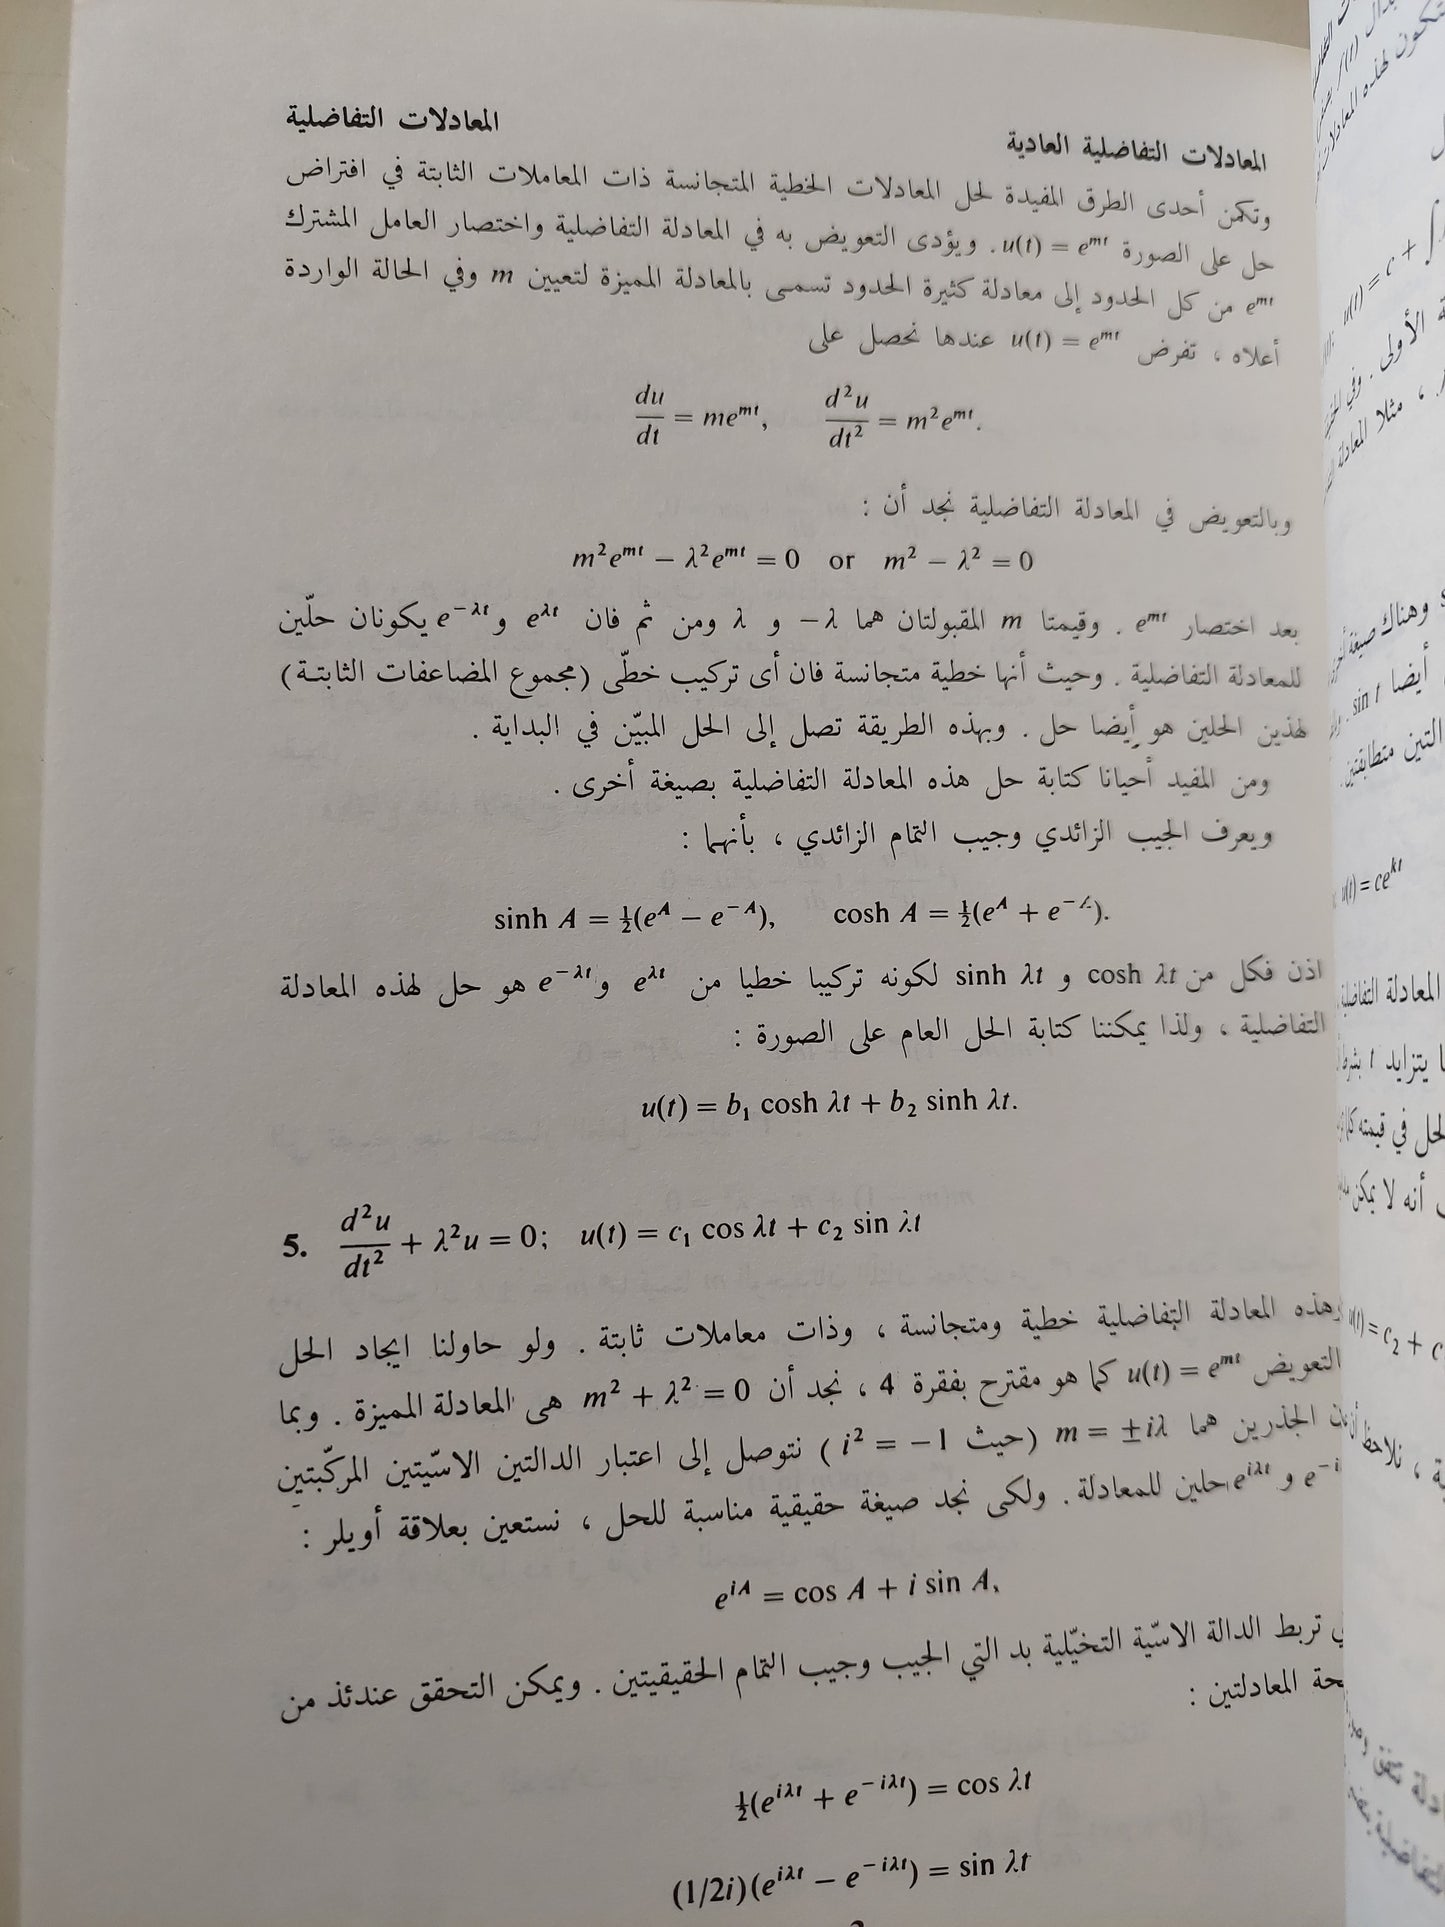 المعادلات التفاضلية
المعادلات التفاضلية العادية
وتكمن أحدى الطرق المفيدة لحل المعادلات الخطية المتجانسة ذات المعاملات الثابتة في افتراض
حل على الصورة u(t) = e^{mt}. ويؤدى التعويض به في المعادلة التفاضلية واختصار العامل المشترك
e^{mt} من كل الحدود إلى معادلة كثيرة الحدود تسمى بالمعادلة المميزة لتعيين m وفي الحالة الواردة
أعلاه ، تفرض u(t) = e^{mt} عندها نحصل على
du/dt = me^{mt}, d²u/dt² = m²e^{mt}.
وبالتعويض في المعادلة التفاضلية نجد أن :
m²e^{mt} − λ²e^{mt} = 0 or m² − λ² = 0
بعد اختصار e^{mt} . وقيمتا m المقبولتان هما λ− و λ ومن ثم فان e^{λt} و e^{−λt} يكونان حلّين
للمعادلة التفاضلية . وحيث أنها خطية متجانسة فان أى تركيب خطّى (مجموع المضاعفات الثابتة)
لهذين الحلين هو أيضا حل . وبهذه الطريقة تصل إلى الحل المبيّن في البداية .
ومن المفيد أحيانا كتابة حل هذه المعادلة التفاضلية بصيغة أخرى .
ويعرف الجيب الزائدي وجيب التمام الزائدي ، بأنهما :
sinh A = ½(e^A − e^{−A}), cosh A = ½(e^A + e^{−A}).
اذن فكل من cosh λt و sinh λt لكونه تركيبا خطيا من e^{λt} و e^{−λt} هو حل لهذه المعادلة
التفاضلية ، ولذا يمكننا كتابة الحل العام على الصورة :
u(t) = b₁ cosh λt + b₂ sinh λt.
5. d²u/dt² + λ²u = 0; u(t) = c₁ cos λt + c₂ sin λt
وهذه المعادلة التفاضلية خطية ومتجانسة ، وذات معاملات ثابتة . ولو حاولنا ايجاد الحل
التعويض u(t) = e^{mt} كما هو مقترح بفقرة 4 ، نجد أن m² + λ² = 0 هى المعادلة المميزة . وبما
الجذرين هما m = ±iλ (حيث i² = −1) نتوصل إلى اعتبار الدالتين الاسّيتين المركّبتين
e^{iλt} حلين للمعادلة . ولكى نجد صيغة حقيقية مناسبة للحل ، نستعين بعلاقة أويلر :
e^{iA} = cos A + i sin A,
تربط الدالة الاسّية التخيّلية بد التي الجيب وجيب التمام الحقيقيتين . ويمكن التحقق عندئذ من
المعادلتين :
½(e^{iλt} + e^{−iλt}) = cos λt
(1/2i)(e^{iλt} − e^{−iλt}) = sin λt
u(t) = ce^{kt}